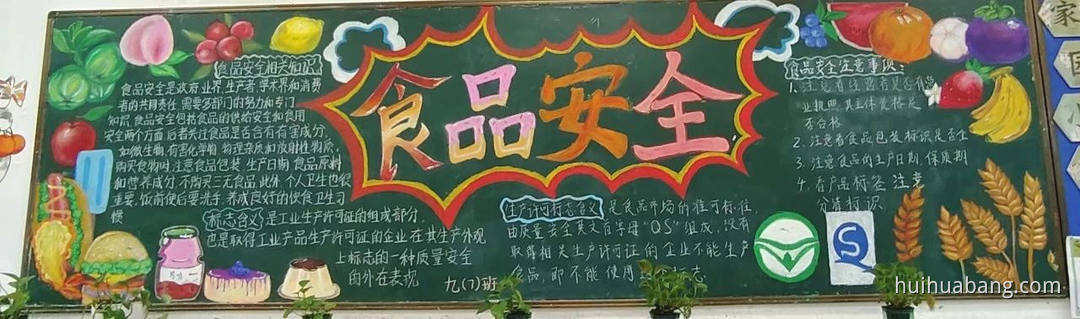 食品安全
食品安全相关知识
食品安全是政府、业界、生产者、学术界和消费
者的共同责任,需要多部门的努力和专门
知识,食品安全包括食品的供给安全和食用
安全两个方面,后者关注食品是否含有有害成分,
如微生物,有害化学物,物理杂质和放射性物质,
购买食物时,注意食品包装,生产日期,食品原料
和营养成分,不购买三无食品,此外,个人卫生也很
重要,饭前便后要洗手,养成良好的饮食卫生习
惯
标志含义是工业生产许可证的组成部分,
也是取得工业产品生产许可证的企业在其生产外观
上标志的一种质量安全
的外在表现
九(7)班
生产许可标志含义 是食品市场的准可标准,
由质量安全英文首字母“QS”组成,没有
取得相关生产许可证的企业不能生产
食品,即不能使用 标志
食品安全注意事项:
1. 注意看经营者是否有
业执照,其主体资格是
否合格
2. 注意看食品包装标识是否全
3. 注意食品的生产日期 保质期
4. 看产品标签 注意
分清标识
家
huihuabang.com